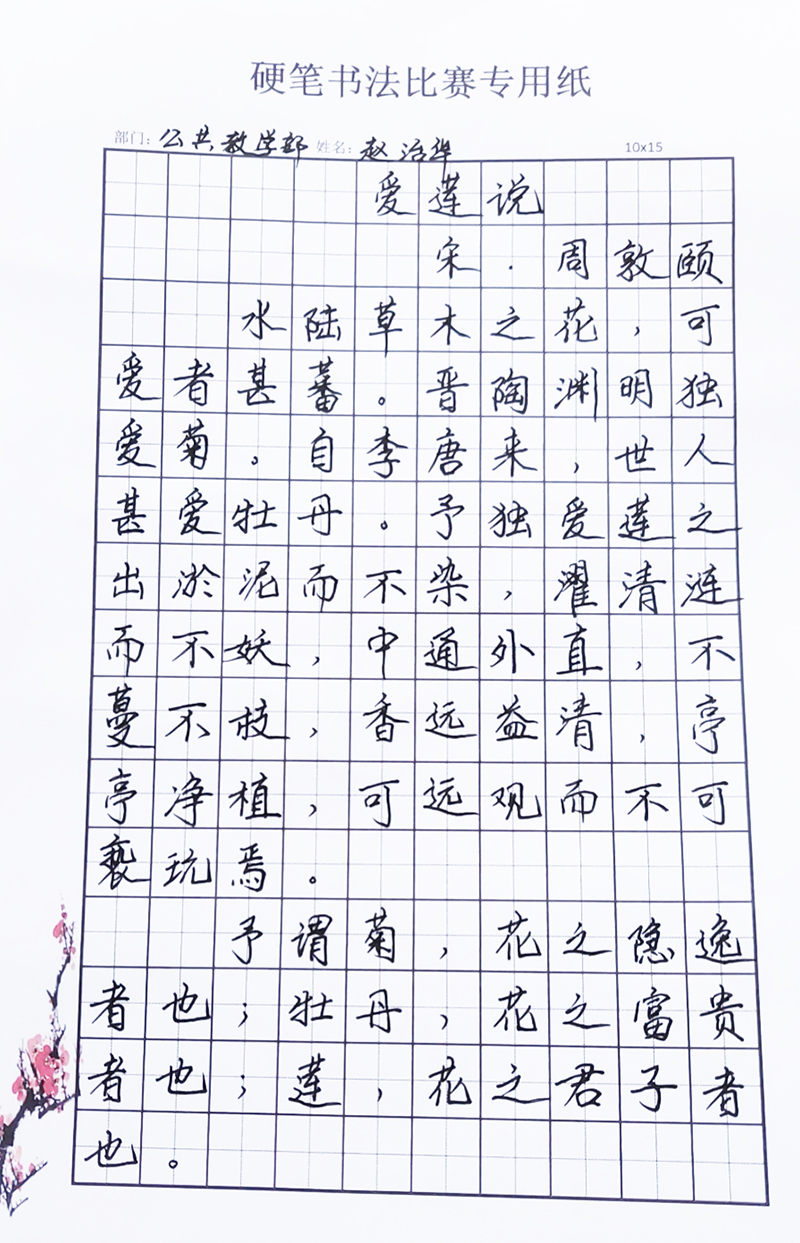 硬笔书法比赛专用纸
部门：公共教学部 姓名：赵治华 10x15
爱莲说
宋．周敦颐
水陆草木之花，可
爱者甚蕃。晋陶渊明独
爱菊。自李唐来，世人
甚爱牡丹。予独爱莲之
出淤泥而不染，濯清涟
而不妖，中通外直，不
蔓不枝，香远益清，亭
亭净植，可远观而不可
亵玩焉。
予谓菊，花之隐逸
者也；牡丹，花之富贵
者也；莲，花之君子者
也。